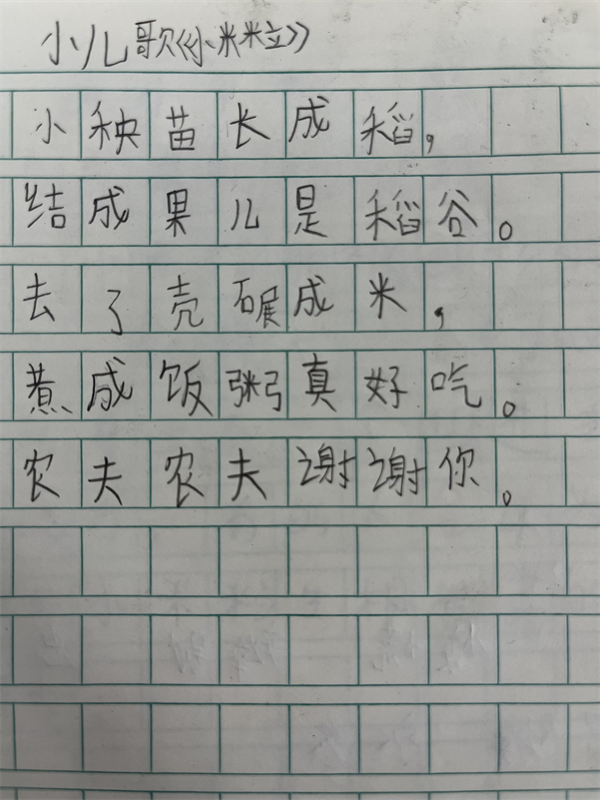 小儿歌《小米粒》
小秧苗长成稻，
结成果儿是稻谷。
去了壳碾成米，
煮成饭粥真好吃。
农夫农夫谢谢你。